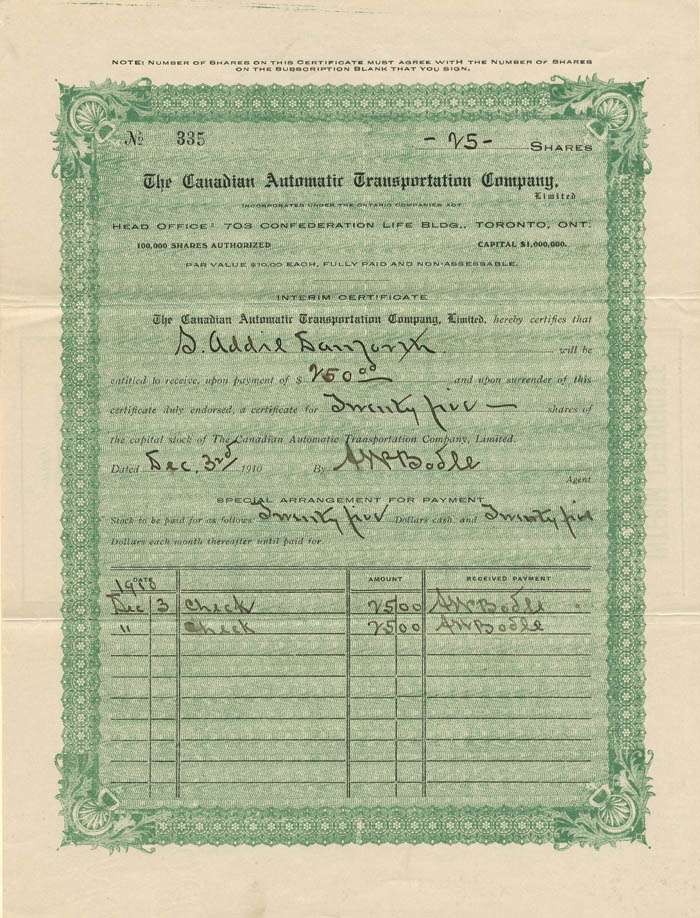 NOTE: NUMBER OF SHARES ON THIS CERTIFICATE MUST AGREE WITH THE NUMBER OF SHARES
ON THE SUBSCRIPTION BLANK THAT YOU SIGN.
No 335 - 25 - SHARES
The Canadian Automatic Transportation Company,
Limited
INCORPORATED UNDER THE ONTARIO COMPANIES ACT
HEAD OFFICE: 703 CONFEDERATION LIFE BLDG., TORONTO, ONT.
100,000 SHARES AUTHORIZED CAPITAL $1,000,000.
PAR VALUE $10.00 EACH, FULLY PAID AND NON-ASSESSABLE.
INTERIM CERTIFICATE
The Canadian Automatic Transportation Company, Limited, hereby certifies that
S. Addie Danforth will be
entitled to receive, upon payment of $ 250 00 and upon surrender of this
certificate duly endorsed, a certificate for Twenty five — shares of
the capital stock of The Canadian Automatic Transportation Company, Limited.
Dated Dec. 3rd 1910 By A McBodle
Agent
SPECIAL ARRANGEMENT FOR PAYMENT
Stock to be paid for as follows: Twenty five Dollars cash, and Twenty five
Dollars each month thereafter until paid for.
DATE AMOUNT RECEIVED PAYMENT
1910
Dec 3 Check 25 00 A McBodle
" Check 25 00 A McBodle